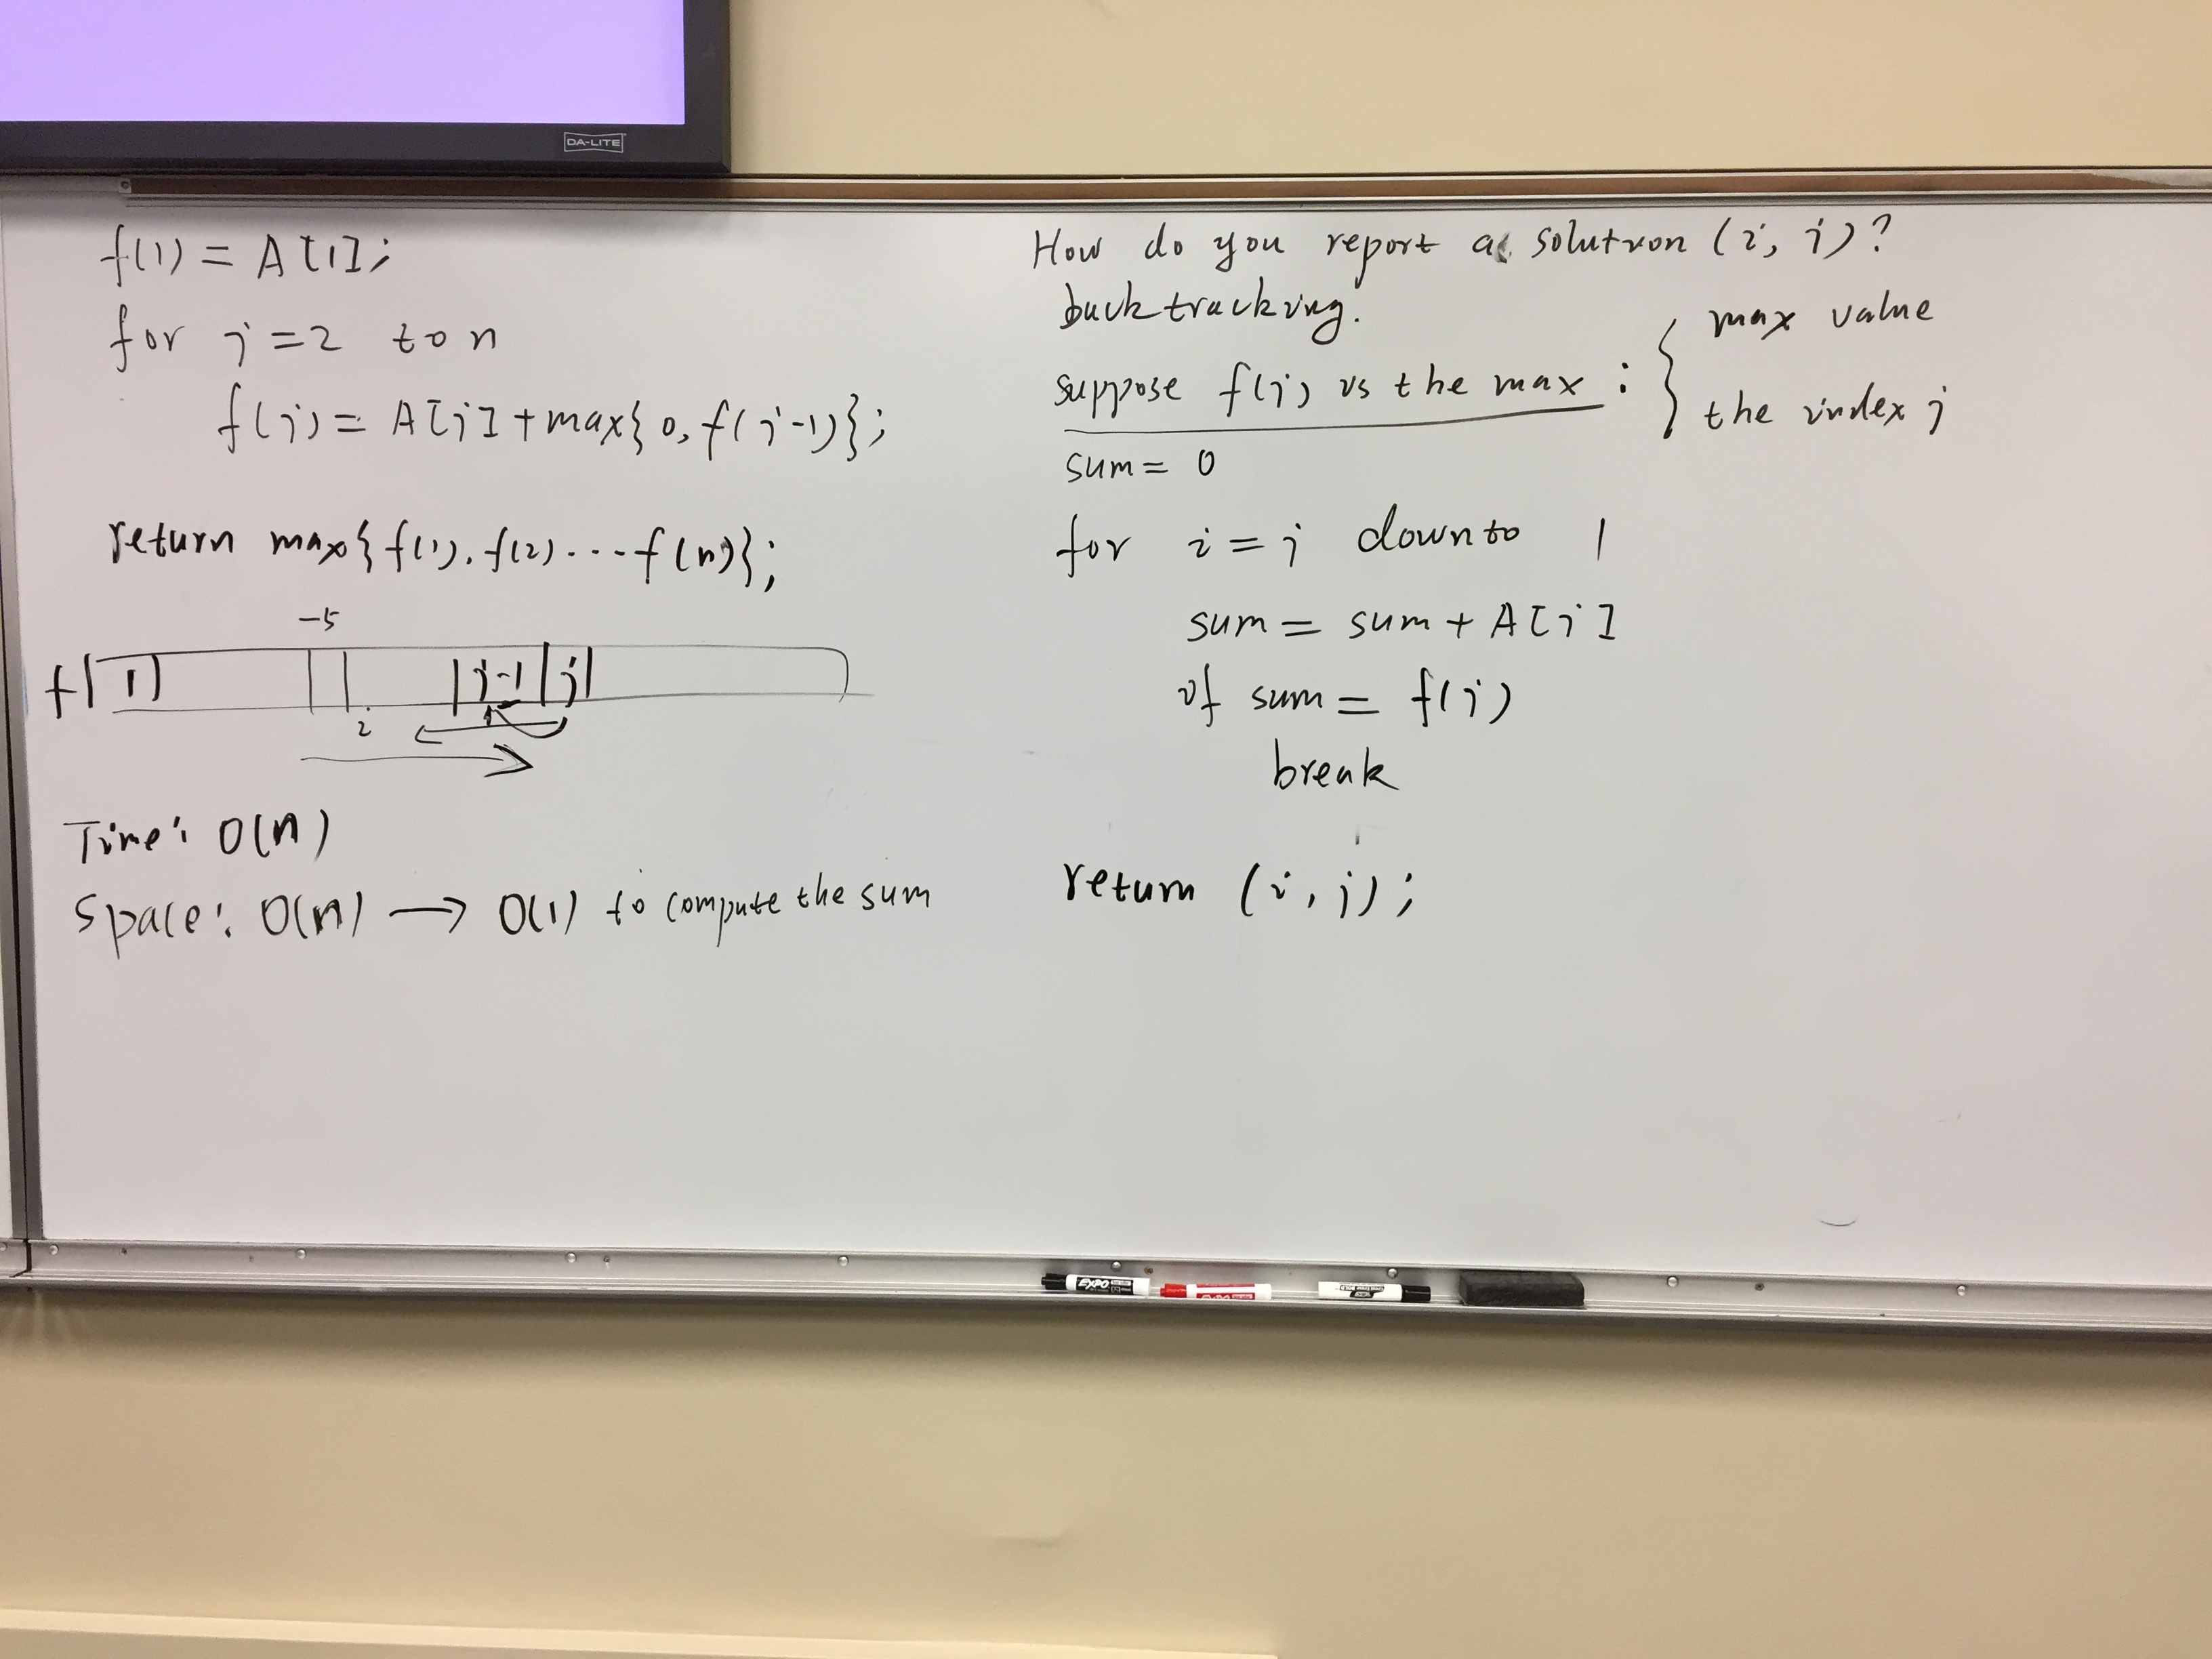 DA-LITE
f(1) = A[1];
for j=2 to n
f(j) = A[j] + max{0, f(j-1)};
return max{f(1), f(2) ... f(n)};
-5
f 1 j-1 j
i
Time: O(n)
Space: O(n) → O(1) to compute the sum
How do you report a solution (i, j)?
backtracking:
suppose f(j) is the max : { max value
the index j
sum = 0
for i = j downto 1
sum = sum + A[j]
if sum = f(j)
break
return (i, j);
EXPO